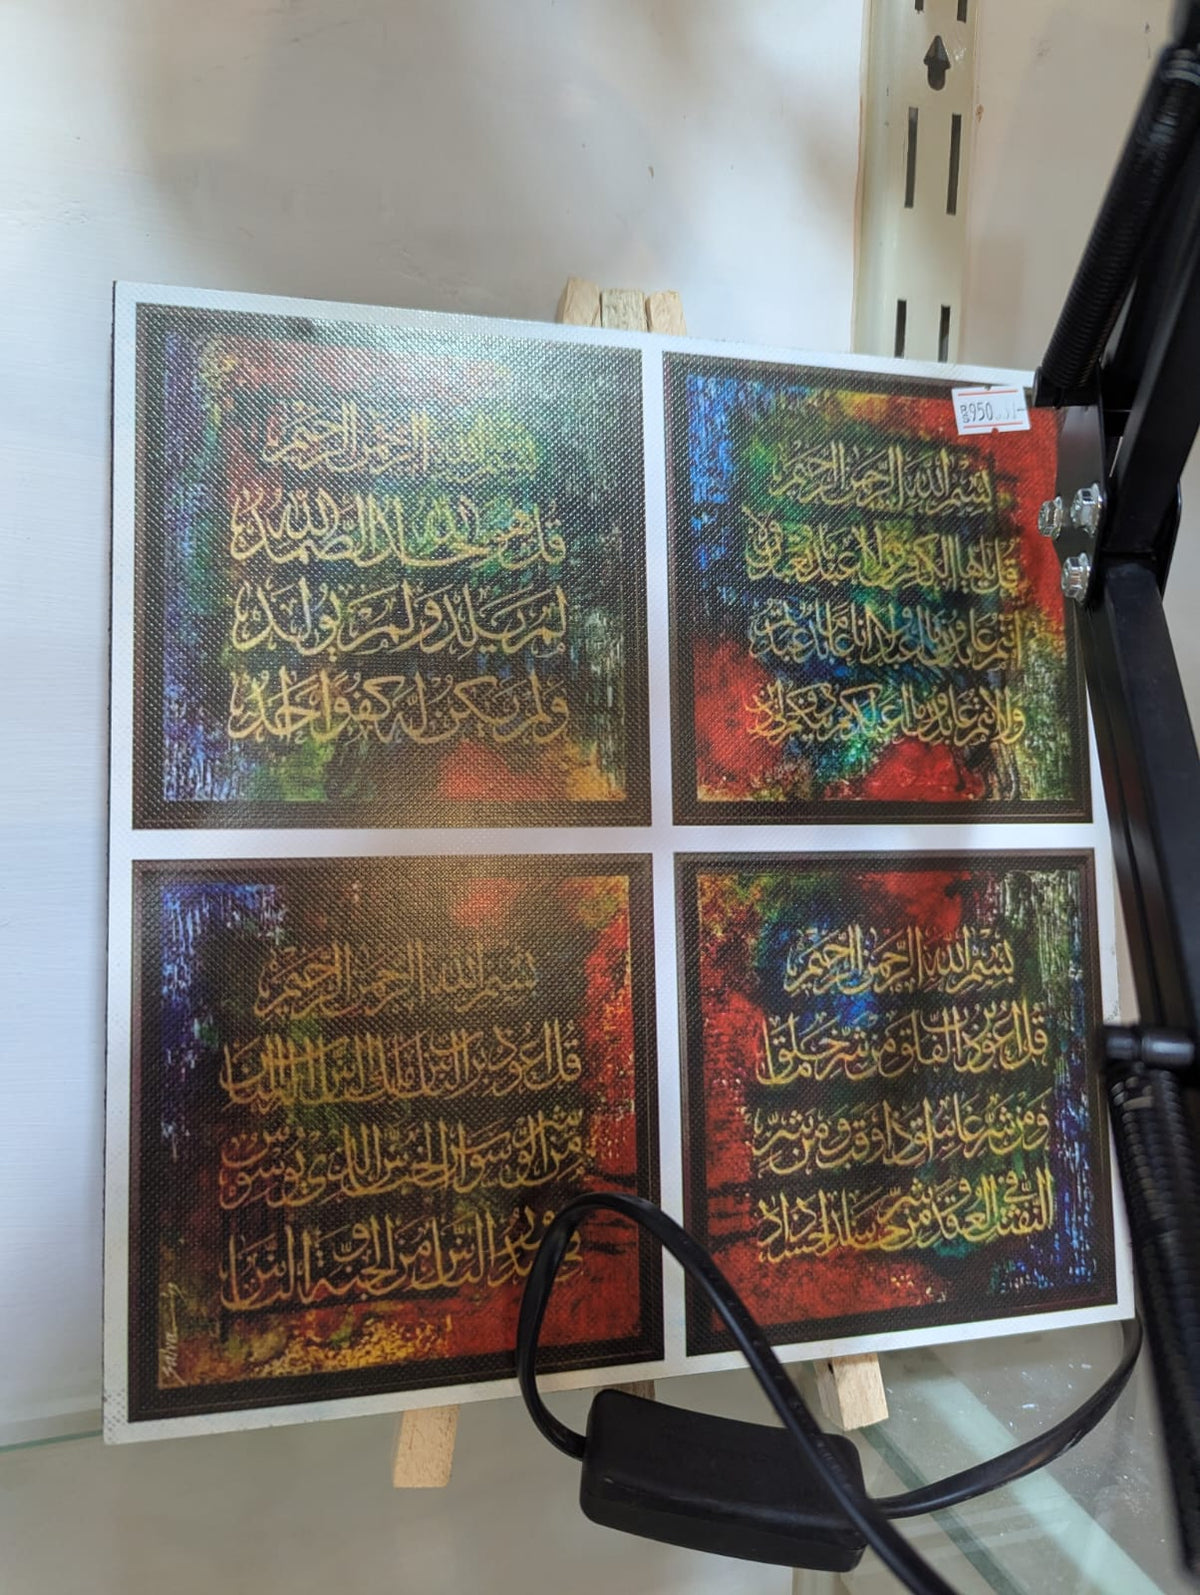 Rs 950
بسم الله الرحمن الرحيم
قل يايها الكفرون لا اعبد ما تعبدون ولا
انتم عبدون ما اعبد ولا انا عابد ما عبدتم
ولا انتم عبدون ما اعبد لكم دينكم ولي دين
بِسْمِ اللهِ الرَّحْمٰنِ الرَّحِيْمِ
قل هو الله احد الله الصمد
لم يلد ولم يولد
ولم يكن له كفوا احد
بِسْمِ اللهِ الرَّحْمٰنِ الرَّحِيْمِ
قل اعوذ برب الفلق من شر ما خلق
ومن شر غاسق اذا وقب ومن شر
النفثت في العقد ومن شر حاسد اذا حسد
بِسْمِ اللهِ الرَّحْمٰنِ الرَّحِيْمِ
قل اعوذ برب الناس ملك الناس اله الناس
من شر الوسواس الخناس الذي يوسوس
في صدور الناس من الجنة والناس